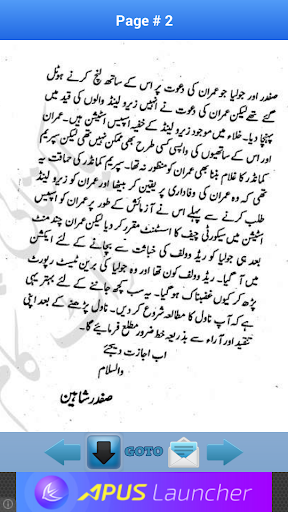 Page # 2
صفدر اور جولیا جو عمران کی دعوت پر اس کے ساتھ لنچ کرنے ہوٹل
گئے تھے لیکن عمران کی دعوت نے انہیں زیرو لینڈ والوں کی قید میں
پہنچا دیا۔ خلاء میں موجود زیرو لینڈ کے خفیہ اسپیس اسٹیشن میں۔ عمران
اور اس کے ساتھیوں کی واپسی کسی طرح بھی ممکن نہیں تھی لیکن سپریم
کمانڈر کا غلام بننا بھی عمران کو منظور نہ تھا۔ سپریم کمانڈر کی حماقت یہ
تھی کہ وہ عمران کی وفاداری پر یقین کر بیٹھا اور عمران کو زیرو لینڈ
طلب کرنے سے پہلے اس نے آزمائش کے طور پر عمران کو اسپیس
اسٹیشن میں سیکورٹی چیف کا اسسٹنٹ مقرر کر دیا لیکن عمران چند منٹ
بعد ہی جولیا کو ریڈ وولف کی خباثت سے بچانے کے لئے ایکشن
میں آ گیا۔ ریڈ وولف کون تھا اور وہ جولیا کی برین ٹیسٹ رپورٹ
پڑھ کر کیوں غضبناک ہو گیا۔ یہ سب کچھ جاننے کے لئے بہتر یہی
ہے کہ آپ ناول کا مطالعہ شروع کر دیں۔ ناول پڑھنے کے بعد اپنی
تنقید اور آراء سے بذریعہ خط ضرور مطلع فرمائیے گا۔
اب اجازت دیجئے
والسلام
صفدر شاہین
GOTO
APUS Launcher